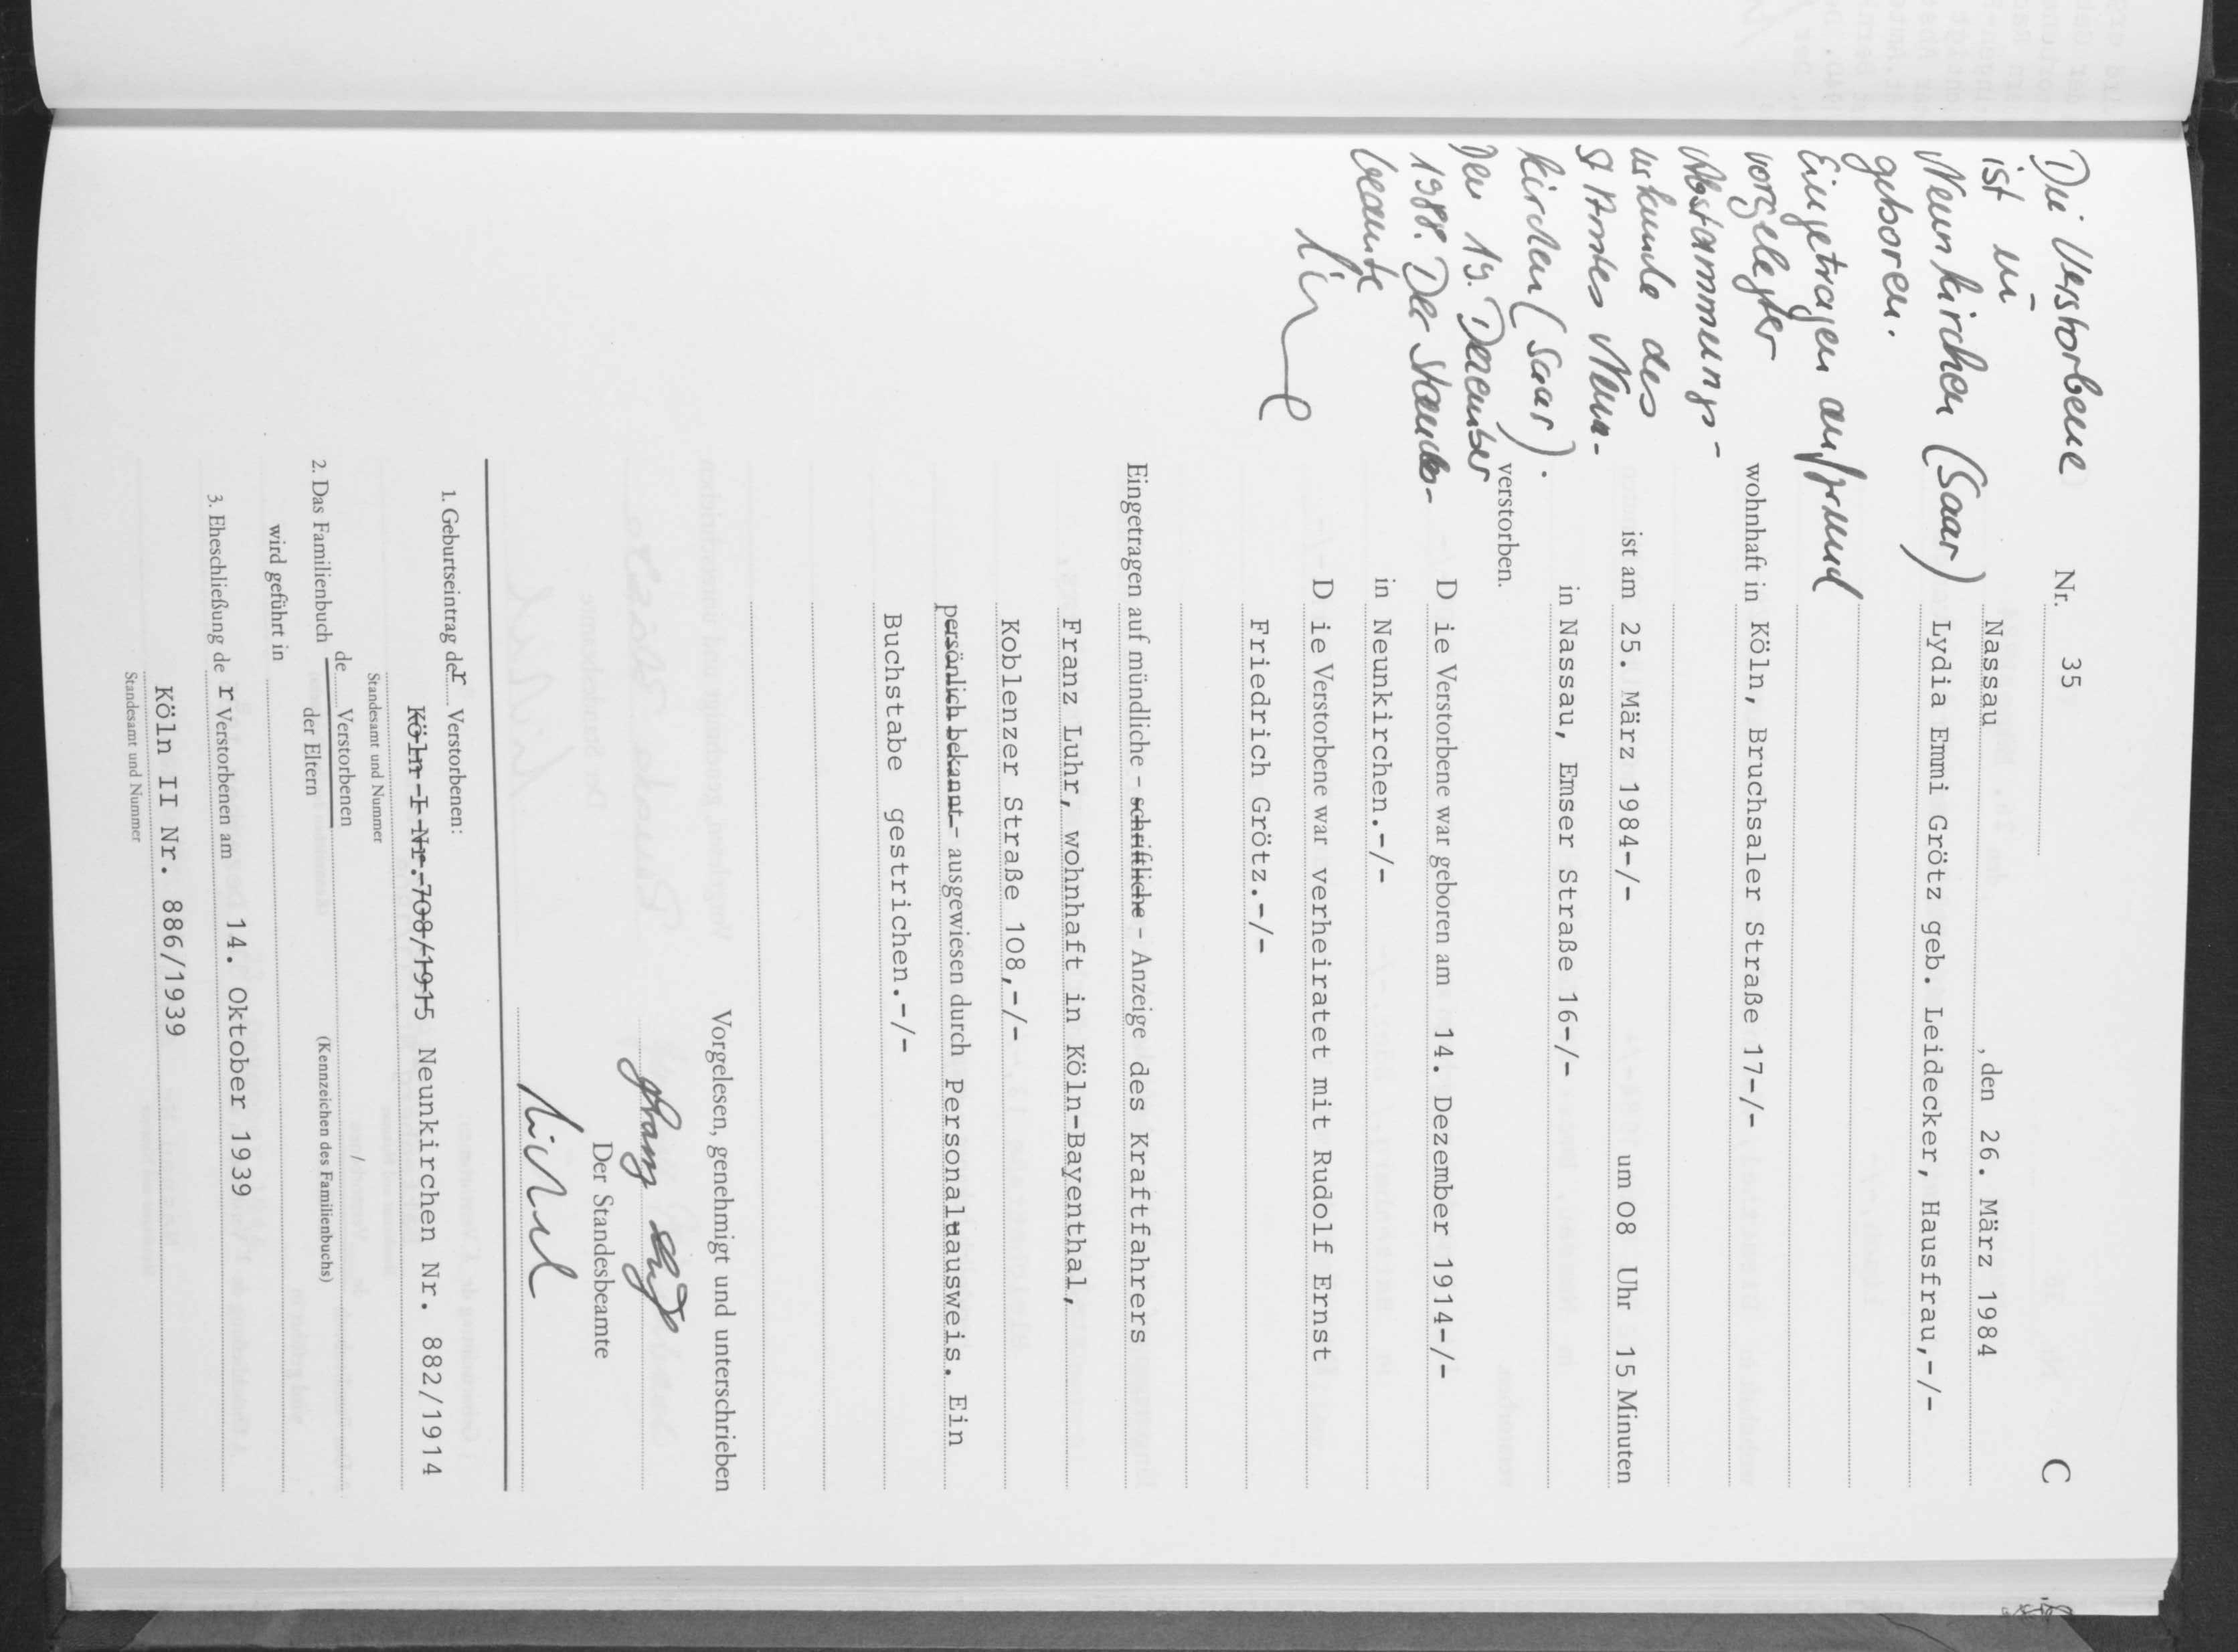 Die Verstorbene
ist in
Neunkirchen (Saar)
geboren.
Eingetragen aufgrund
vorgelegter
Abstammungs-
urkunde des
StAmtes Neun-
kirchen (Saar).
Den 19. Dezember
1988. Der Standes-
beamte
C
Nr. 35
Nassau, den 26. März 1984
Lydia Emmi Grötz geb. Leidecker, Hausfrau,-/-
wohnhaft in Köln, Bruchsaler Straße 17-/-
ist am 25. März 1984-/- um 08 Uhr 15 Minuten
in Nassau, Emser Straße 16-/-
verstorben.
Die Verstorbene war geboren am 14. Dezember 1914-/-
in Neunkirchen.-/-
Die Verstorbene war verheiratet mit Rudolf Ernst
Friedrich Grötz.-/-
Eingetragen auf mündliche - schriftliche - Anzeige des Kraftfahrers
Franz Luhr, wohnhaft in Köln-Bayenthal,
Koblenzer Straße 108,-/-
persönlich bekannt - ausgewiesen durch Personaluausweis. Ein
Buchstabe gestrichen.-/-
Vorgelesen, genehmigt und unterschrieben
Franz
Der Standesbeamte
1. Geburtseintrag der Verstorbenen:
Köln I Nr. 708/1915 Neunkirchen Nr. 882/1914
Standesamt und Nummer
2. Das Familienbuch de Verstorbenen / der Eltern
(Kennzeichen des Familienbuchs)
wird geführt in
3. Eheschließung der Verstorbenen am 14. Oktober 1939
Köln II Nr. 886/1939
Standesamt und Nummer